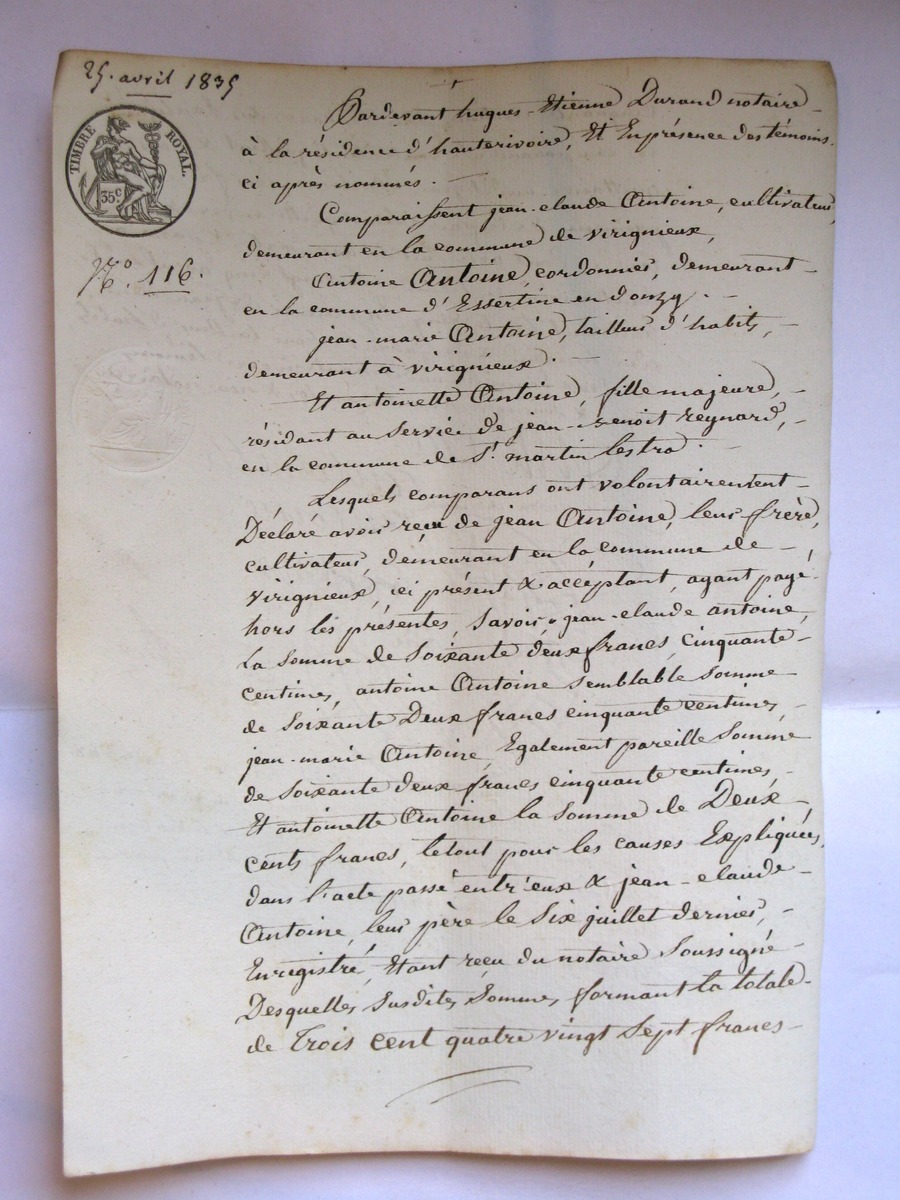 25. avril 1835
TIMBRE ROYAL.
35c
N° 116.
Pardevant hugues-Etienne Durand notaire
à la résidence d'hauterivoire, Et En présence des témoins
ci après nommés. -
Comparaissent jean-claude Antoine, cultivateur,
demeurant en la commune de virignieux,
Antoine Antoine, cordonnier, demeurant
en la commune d'Essertine en donzy. -
jean-marie Antoine, tailleur d'habits, -
demeurant à virignieux. -
Et antoinette Antoine, fille majeure, -
résidant au service de jean-Benoit Reynard, -
en la commune de St. martin lestra. -
Lesquels comparans ont volontairement
Déclaré avoir reçu de jean Antoine, leur frère,
cultivateur, demeurant en la commune de -
virignieux, ici présent & accéptant, ayant payé
hors les présentes, Savoir, jean-claude antoine,
La Somme de Soixante deux francs, Cinquante
centimes, antoine Antoine semblable Somme
de Soixante Deux francs cinquante centimes, -
jean-marie Antoine, Egalement pareille Somme
de Soixante deux francs cinquante centimes, -
Et antoinette Antoine la Somme de Deux
cents francs, le tout pour les causes Expliquées,
dans l'acte passé entr'eux & jean-claude
Antoine, leur père le Six juillet dernier, -
Enregistré, Etant reçu du notaire Soussigné
Desquelles Susdites Sommes, formant la totale
de Trois cent quatre vingt Sept francs